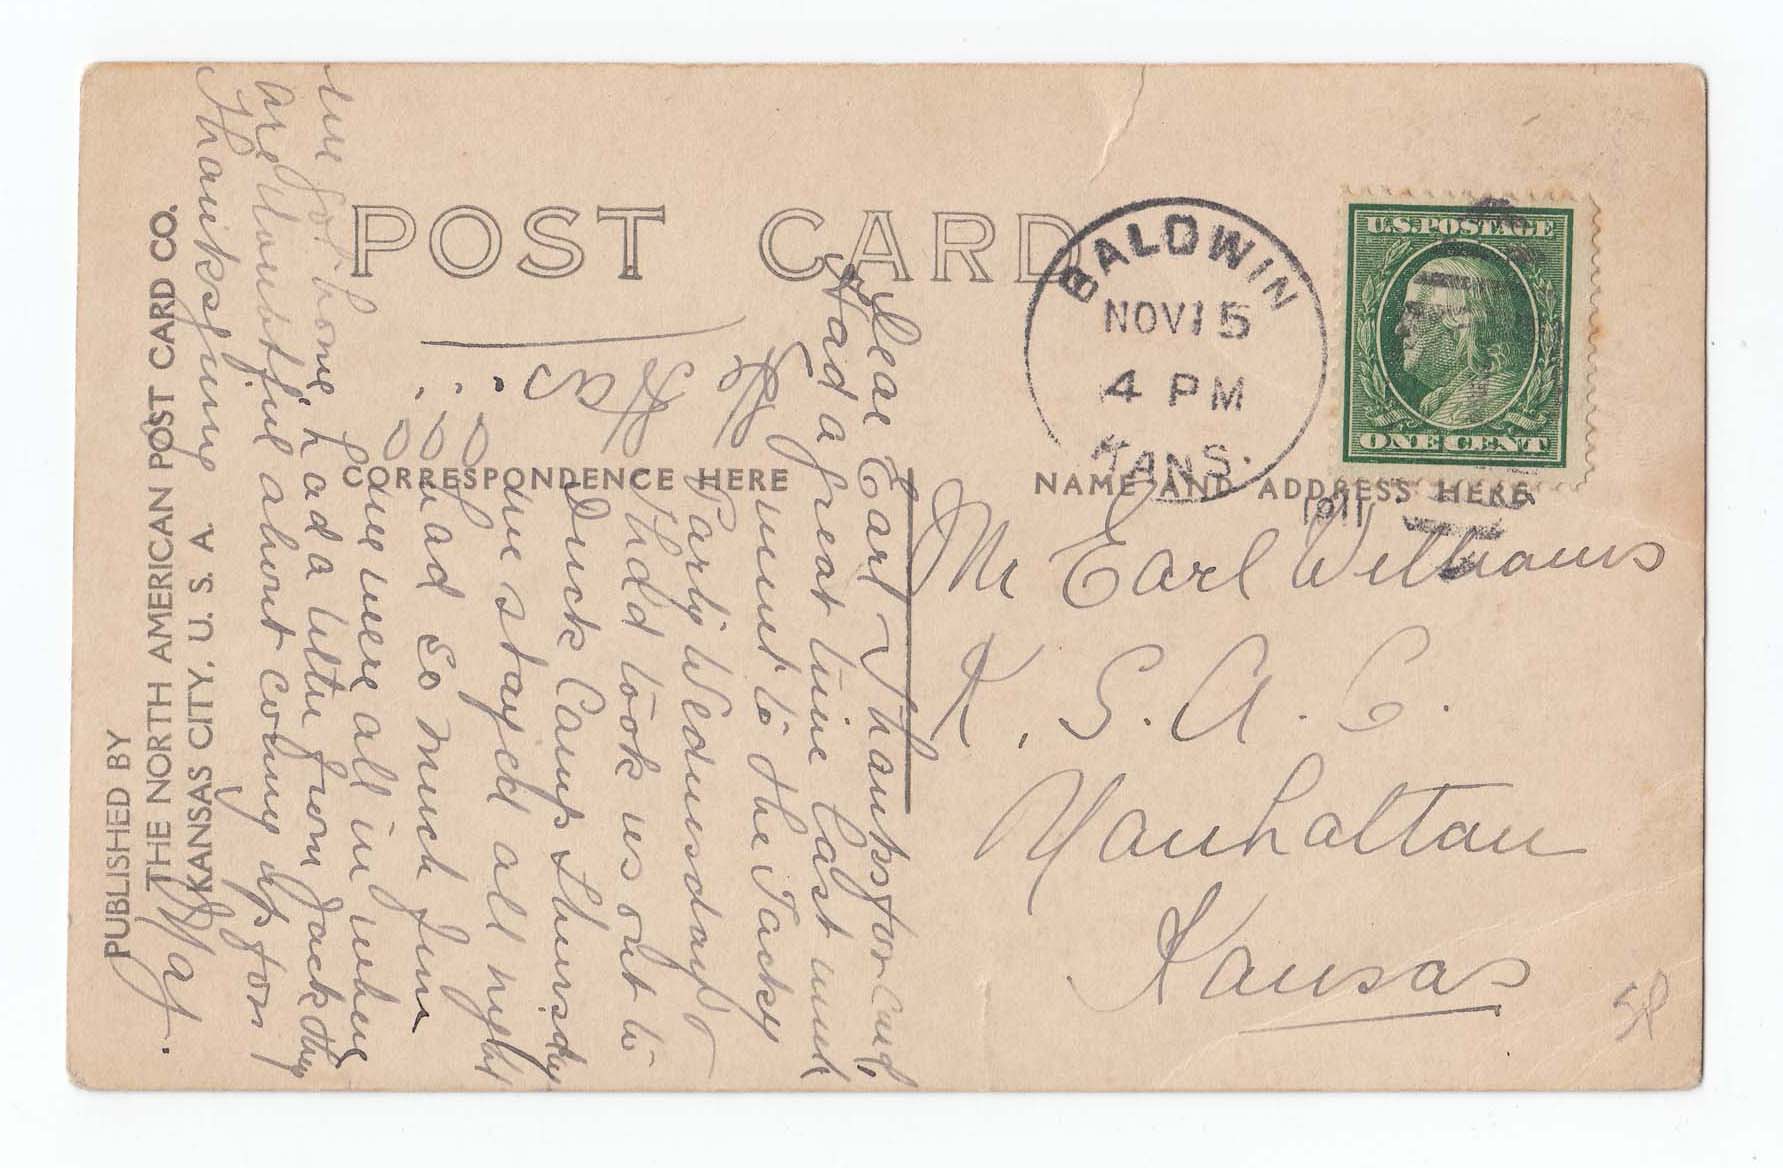 POST CARD
CORRESPONDENCE HERE
NAME AND ADDRESS HERE
BALDWIN
NOV 15
4 PM
KANS.
1911
U.S. POSTAGE
ONE CENT
Mr Earl Williams
K. S. A. C.
Manhattan
Kansas
Dear Earl Thanks for Card,
Had a great time last week
went to the Tacky
Party Wednesday &
Thdd took us out to
Duck Camp Thursday
we stayed all night
had so much fun
we were all in when
we got home, had a letter from Jack they
are doubtful about coming up for
Thanksgiving
May.
PUBLISHED BY
THE NORTH AMERICAN POST CARD CO.
KANSAS CITY, U. S. A.